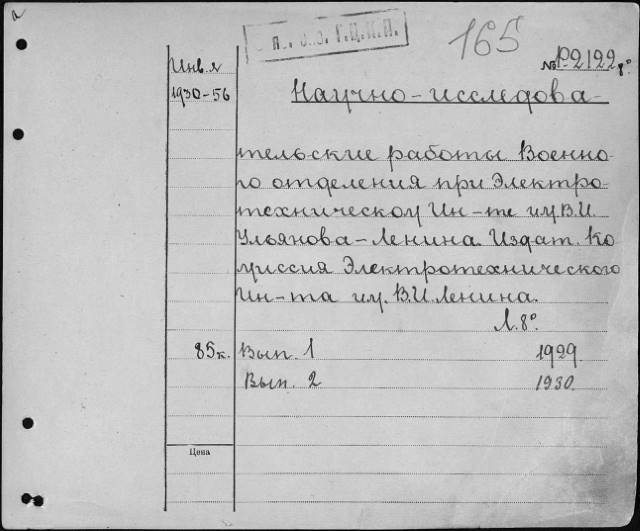 165
№ Р2122 8°
Инв. я
1930-56
Научно-исследова-
тельские работы Военно-
го отделения при Электро-
техническом Ин-те им. В.И.
Ульянова-Ленина. Издат. Ко
миссия Электротехнического
Ин-та им. В.И. Ленина.
Л. 8°.
85к. Вып. 1 1929.
Вып. 2 1930.
Цена